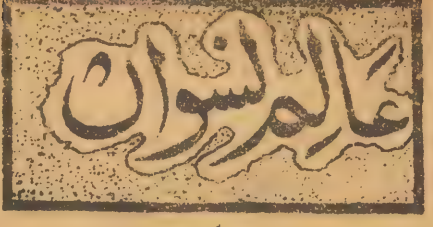 عالم نسوان